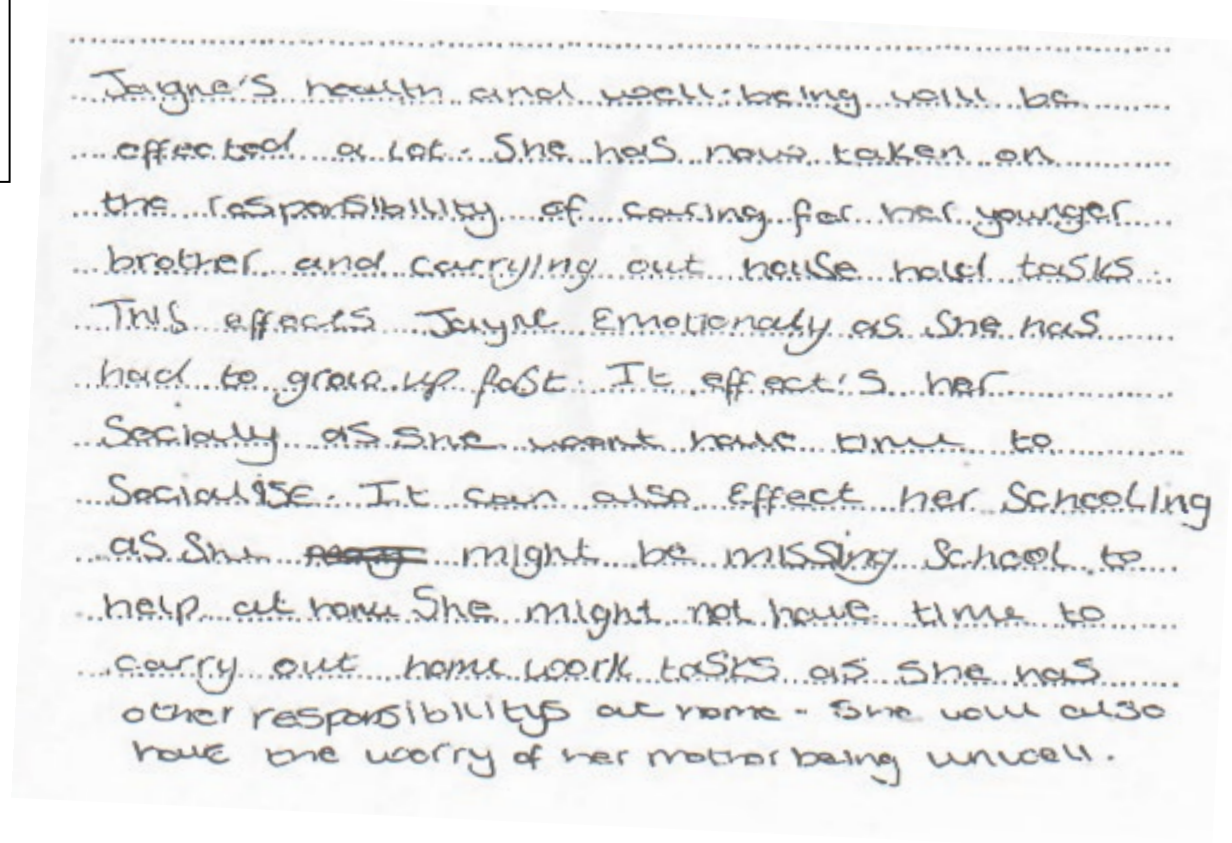 Jaigne's health and well-being will be
effected a lot. She has now taken on
the responsibility of caring for her younger
brother and carrying out house hold tasks.
This effects Jayne Emotionaly as She has
had to grow up fast. It effect's her
Socially as she woont have time to
Socialise. It can also Effect her Schooling
as She might be missing School to
help at home She might not have time to
carry out home work tasks as she has
other responsibilitys at home - She will also
have the worry of her mother being unwell.